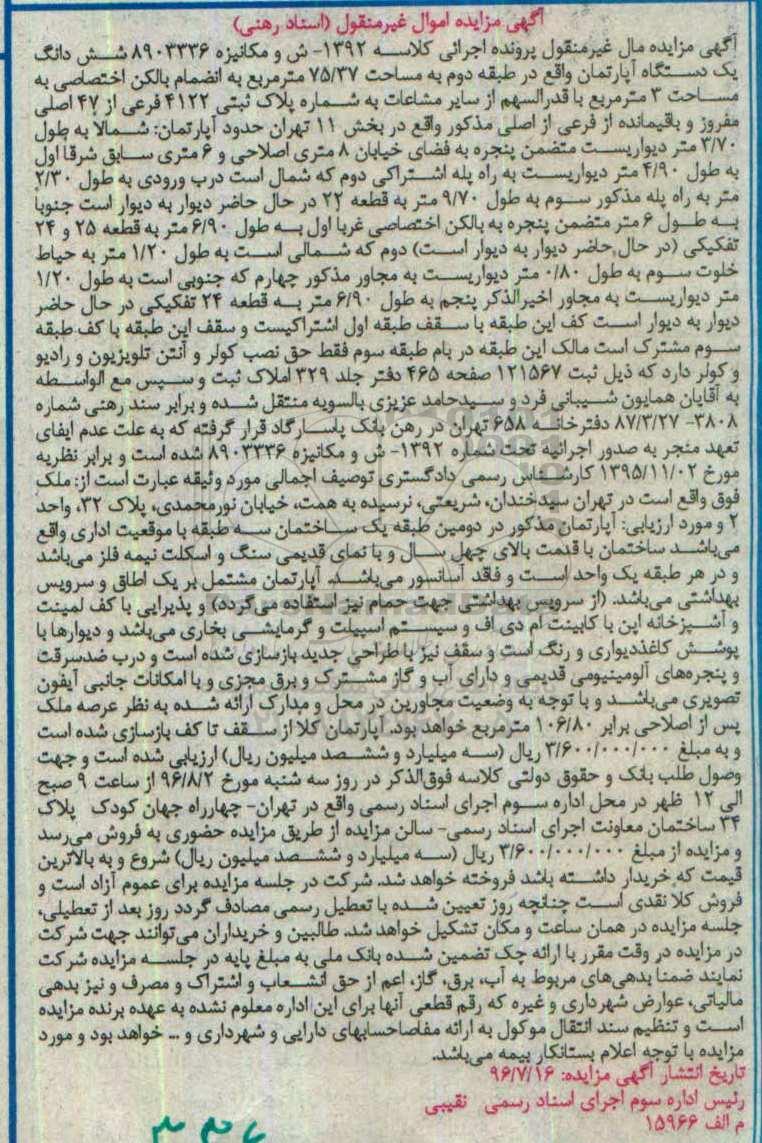 آگهی مزایده اموال غیرمنقول (اسناد رهنی)
آگهی مزایده مال غیرمنقول پرونده اجرائی کلاسه ۱۳۹۲- ش و مکانیزه ۸۹۰۳۳۳۶ شش دانگ
یک دستگاه آپارتمان واقع در طبقه دوم به مساحت ۷۵/۳۷ مترمربع به انضمام بالکن اختصاصی به
مساحت ۳ مترمربع با قدرالسهم از سایر مشاعات به شماره پلاک ثبتی ۴۱۲۲ فرعی از ۴۷ اصلی
مفروز و باقیمانده از فرعی از اصلی مذکور واقع در بخش ۱۱ تهران حدود آپارتمان: شمالا به طول
۳/۷۰ متر دیواریست متضمن پنجره به فضای خیابان ۸ متری اصلاحی و ۶ متری سابق شرقا اول
به طول ۴/۹۰ متر دیواریست به راه پله اشتراکی دوم که شمال است درب ورودی به طول ۲/۳۰
متر به راه پله مذکور سوم به طول ۹/۷۰ متر به قطعه ۲۲ در حال حاضر دیوار به دیوار است جنوبا
به طول ۶ متر متضمن پنجره به بالکن اختصاصی غربا اول به طول ۶/۹۰ متر به قطعه ۲۵ و ۲۴
تفکیکی (در حال حاضر دیوار به دیوار است) دوم که شمالی است به طول ۱/۲۰ متر به حیاط
خلوت سوم به طول ۰/۸۰ متر دیواریست به مجاور مذکور چهارم که جنوبی است به طول ۱/۲۰
متر دیواریست به مجاور اخیرالذکر پنجم به طول ۶/۹۰ متر به قطعه ۲۴ تفکیکی در حال حاضر
دیوار به دیوار است کف این طبقه با سقف طبقه اول اشتراکیست و سقف این طبقه با کف طبقه
سوم مشترک است مالک این طبقه در بام طبقه سوم فقط حق نصب کولر و آنتن تلویزیون و رادیو
و کولر دارد که ذیل ثبت ۱۲۱۵۶۷ صفحه ۴۶۵ دفتر جلد ۳۲۹ املاک ثبت و سپس مع الواسطه
به آقایان همایون شیبانی فرد و سیدحامد عزیزی بالسویه منتقل شده و برابر سند رهنی شماره
۳۸۰۸- ۸۷/۳/۲۷ دفترخانه ۶۵۸ تهران در رهن بانک پاسارگاد قرار گرفته که به علت عدم ایفای
تعهد منجر به صدور اجرائیه تحت شماره ۱۳۹۲- ش و مکانیزه ۸۹۰۳۳۳۶ شده است و برابر نظریه
مورخ ۱۳۹۵/۱۱/۰۲ کارشناس رسمی دادگستری توصیف اجمالی مورد وثیقه عبارت است از: ملک
فوق واقع است در تهران سیدخندان، شریعتی، نرسیده به همت، خیابان نورمحمدی، پلاک ۳۲، واحد
۲ و مورد ارزیابی: آپارتمان مذکور در دومین طبقه یک ساختمان سه طبقه با موقعیت اداری واقع
می‌باشد ساختمان با قدمت بالای چهل سال و با نمای قدیمی سنگ و اسکلت نیمه فلز می‌باشد
و در هر طبقه یک واحد است و فاقد آسانسور می‌باشد. آپارتمان مشتمل بر یک اطاق و سرویس
بهداشتی می‌باشد. (از سرویس بهداشتی جهت حمام نیز استفاده می‌گردد) و پذیرایی با کف لمینت
و آشپزخانه اپن با کابینت ام دی اف و سیستم اسپیلت و گرمایشی بخاری می‌باشد و دیوارها با
پوشش کاغذدیواری و رنگ است و سقف نیز با طراحی جدید بازسازی شده است و درب ضدسرقت
و پنجره‌های آلومینیومی قدیمی و دارای آب و گاز مشترک و برق مجزی و با امکانات جانبی آیفون
تصویری می‌باشد و با توجه به وضعیت مجاورین در محل و مدارک ارائه شده به نظر عرصه ملک
پس از اصلاحی برابر ۱۰۶/۸۰ مترمربع خواهد بود. آپارتمان کلا از سقف تا کف بازسازی شده است
و به مبلغ ۳/۶۰۰/۰۰۰/۰۰۰ ریال (سه میلیارد و ششصد میلیون ریال) ارزیابی شده است و جهت
وصول طلب بانک و حقوق دولتی کلاسه فوق‌الذکر در روز سه شنبه مورخ ۹۶/۸/۲ از ساعت ۹ صبح
الی ۱۲ ظهر در محل اداره سوم اجرای اسناد رسمی واقع در تهران- چهارراه جهان کودک پلاک
۳۴ ساختمان معاونت اجرای اسناد رسمی- سالن مزایده از طریق مزایده حضوری به فروش می‌رسد
و مزایده از مبلغ ۳/۶۰۰/۰۰۰/۰۰۰ ریال (سه میلیارد و ششصد میلیون ریال) شروع و به بالاترین
قیمت که خریدار داشته باشد فروخته خواهد شد. شرکت در جلسه مزایده برای عموم آزاد است و
فروش کلا نقدی است چنانچه روز تعیین شده با تعطیل رسمی مصادف گردد روز بعد از تعطیلی،
جلسه مزایده در همان ساعت و مکان تشکیل خواهد شد. طالبین و خریداران می‌توانند جهت شرکت
در مزایده در وقت مقرر با ارائه چک تضمین شده بانک ملی به مبلغ پایه در جلسه مزایده شرکت
نمایند ضمنا بدهی‌های مربوط به آب، برق، گاز، اعم از حق انشعاب و اشتراک و مصرف و نیز بدهی
مالیاتی، عوارض شهرداری و غیره که رقم قطعی آنها برای این اداره معلوم نشده به عهده برنده مزایده
است و تنظیم سند انتقال موکول به ارائه مفاصاحسابهای دارایی و شهرداری و ... خواهد بود و مورد
مزایده با توجه اعلام بستانکار بیمه می‌باشد.
تاریخ انتشار آگهی مزایده: ۹۶/۷/۱۶
رئیس اداره سوم اجرای اسناد رسمی نقیبی
م الف ۱۵۹۶۶